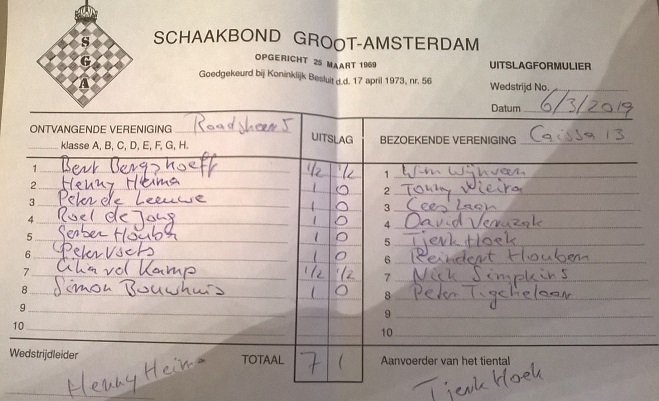 SGA
SCHAAKBOND GROOT-AMSTERDAM
OPGERICHT 25 MAART 1969
Goedgekeurd bij Koninklijk Besluit d.d. 17 april 1973, nr. 56
UITSLAGFORMULIER
Wedstrijd No.
Datum 6/3/2019
ONTVANGENDE VERENIGING Raadsheer 5
klasse A, B, C, D, E, F, G, H.
UITSLAG
BEZOEKENDE VERENIGING Caissa 13
1 Bert Bergshoeff 1/2 1/2 1 Wim Wijnveen
2 Henny Heima 1 0 2 Tonny Vieira
3 Peter de Leeuwe 1 0 3 Cees Laan
4 Roel de Jong 1 0 4 David
5 Gerben Houben 1 0 5 Tjerk Hoek
6 Peter 1 0 6 Reindert Houben
7 vd Kamp 1/2 1/2 7 Nick Simpkins
8 Simon Bouwhuis 1 0 8 Peter Tigchelaar
9 9
10 10
Wedstrijdleider
Henny Heima
TOTAAL 7 1
Aanvoerder van het tiental
Tjerk Hoek